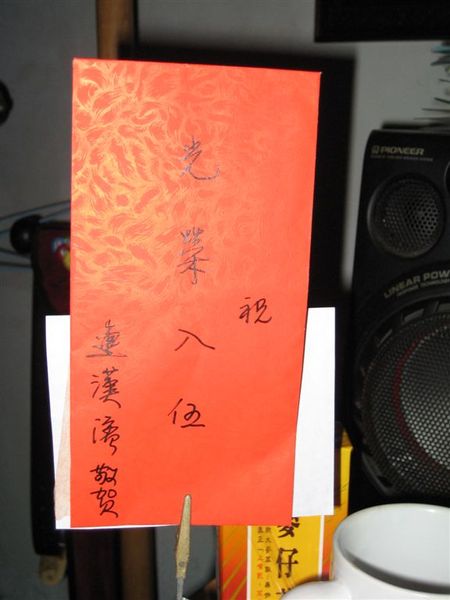 祝
光榮入伍
連漢濤敬賀
PIONEER
LINEAR POW
麥仔